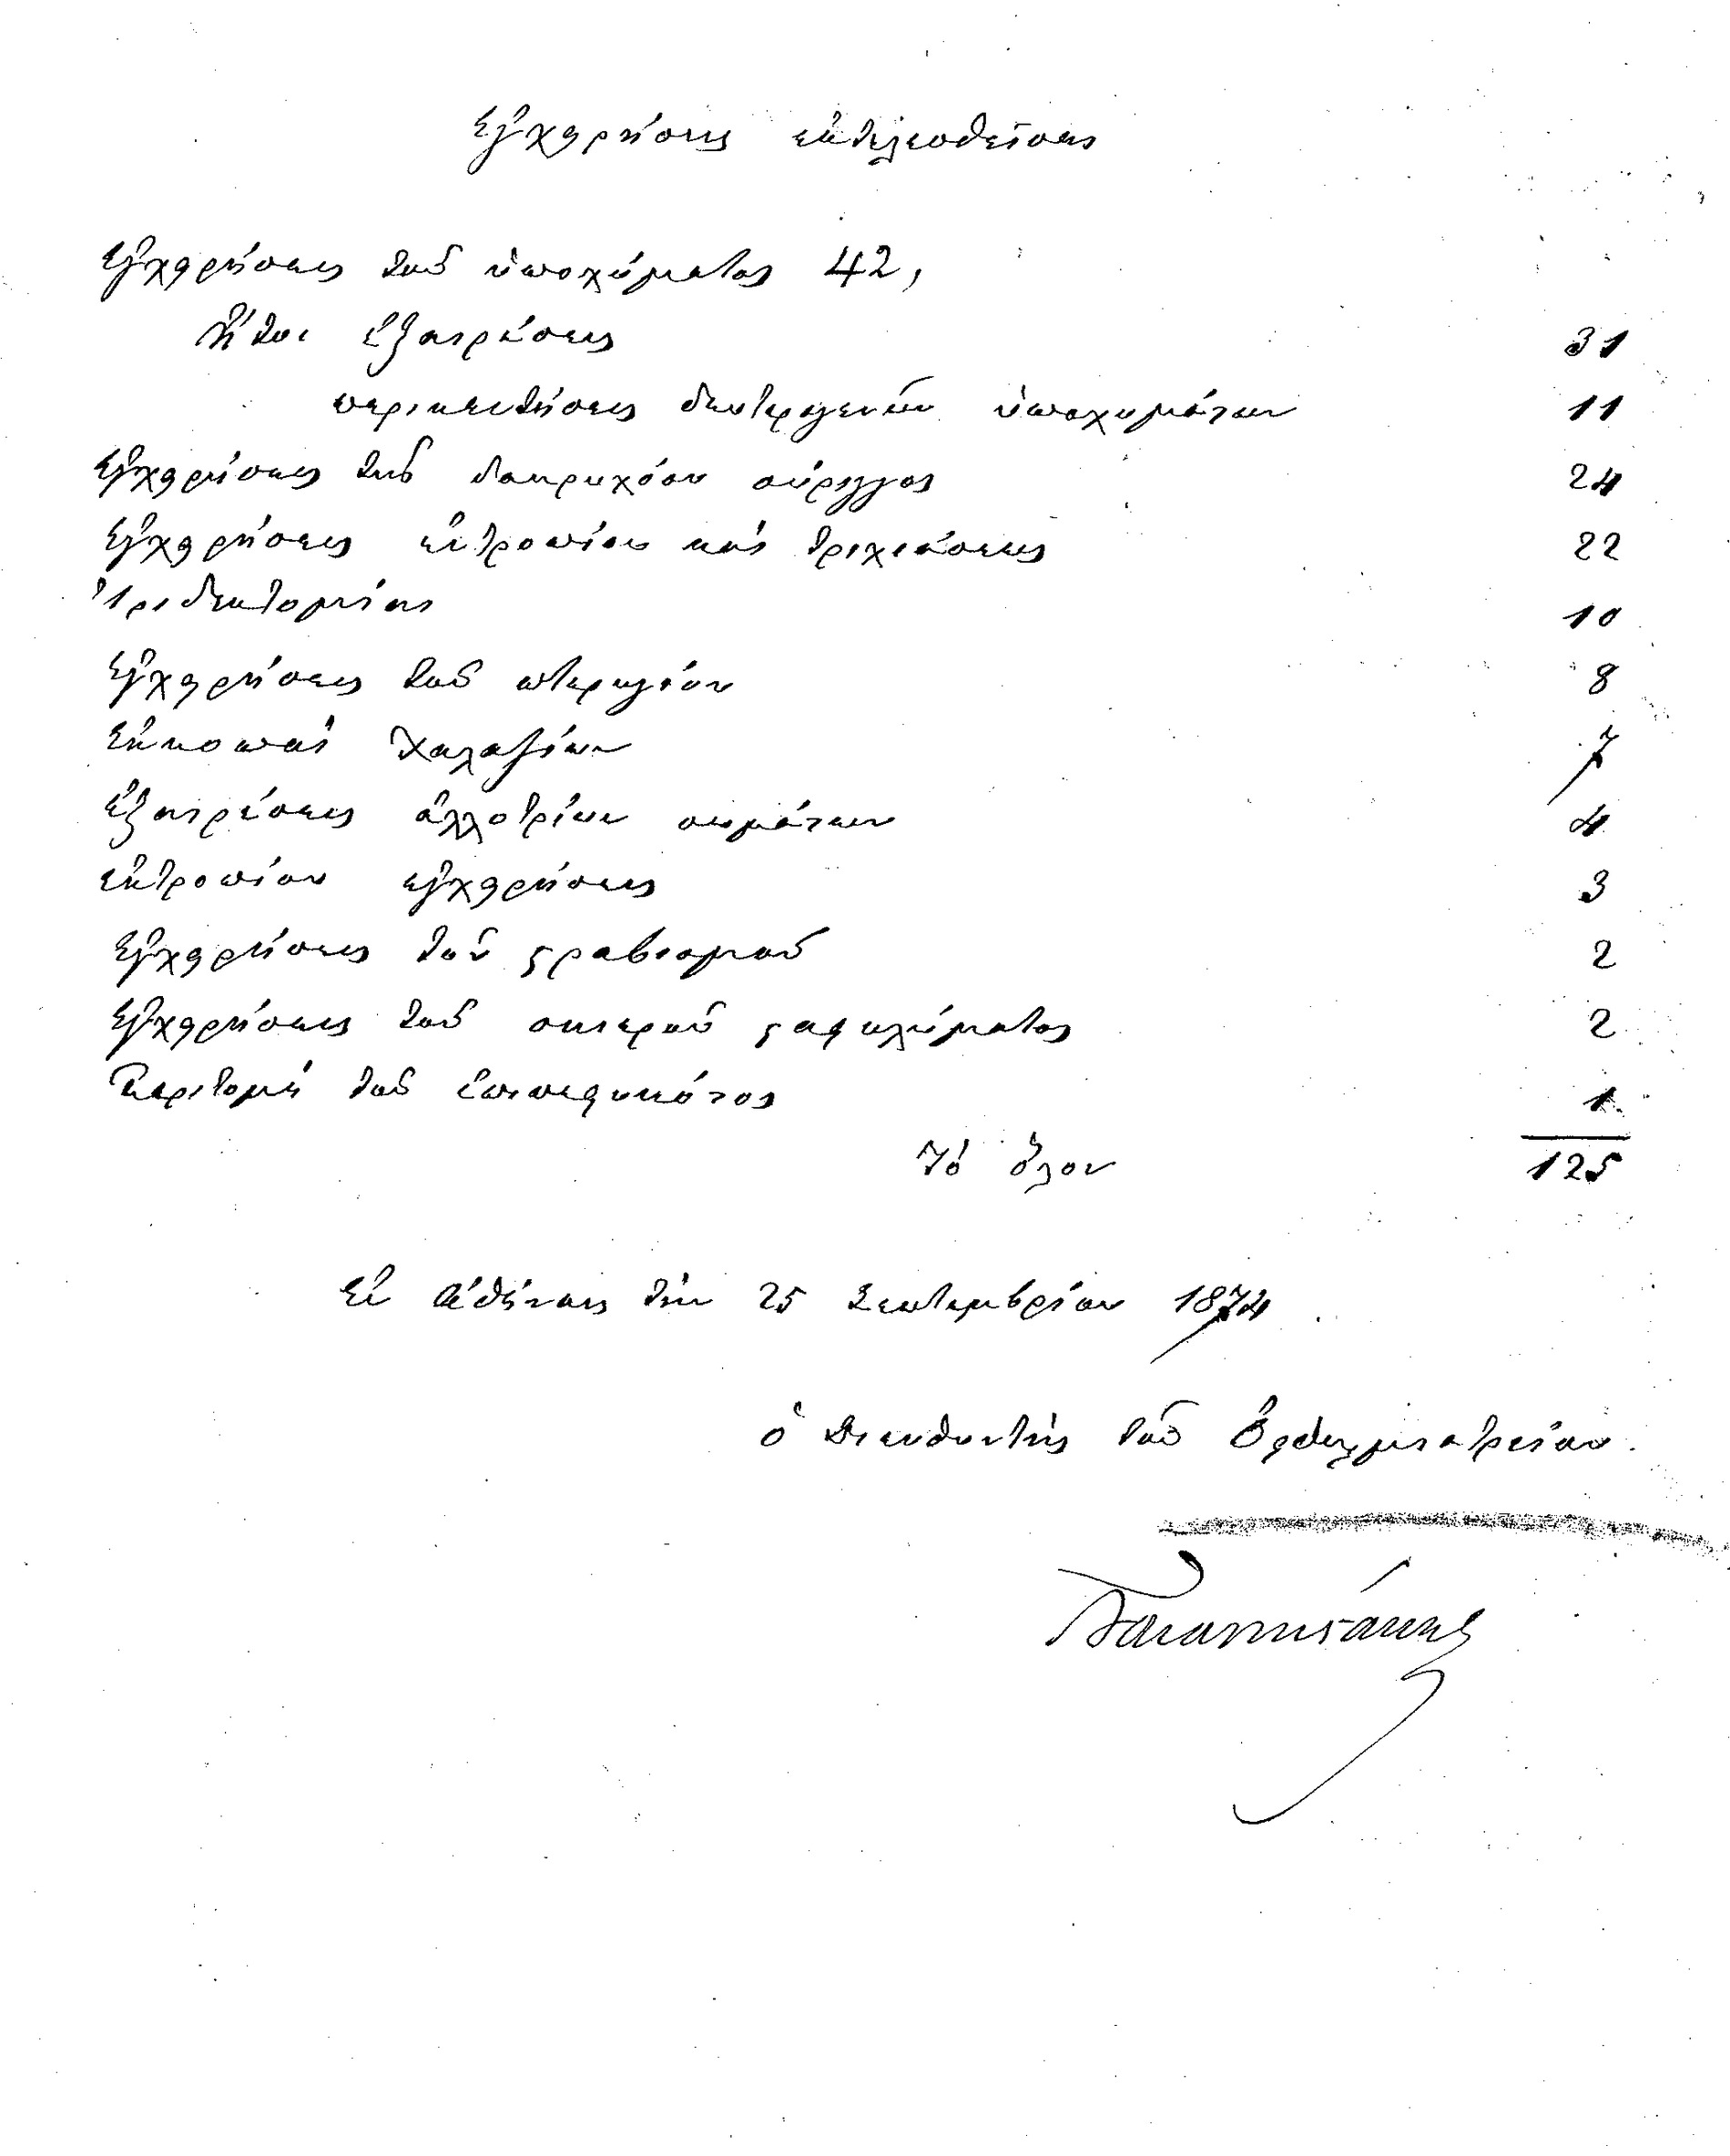 Ἐγχειρήσεις ἐκτελεσθεῖσαι
Ἐγχειρήσεις τοῦ ὑποχύματος 42,
ἤτοι ἐξαιρέσεις 31
περικεντήσεις δευτερογενῶν ὑποχυμάτων 11
Ἐγχειρήσεις τῆς δακρυχόου σύριγγος 24
Ἐγχειρήσεις ἐντροπίου καὶ τριχιάσεως 22
Ἰριδεκτομίαι 10
Ἐγχειρήσεις τοῦ πτερυγίου 8
Ἐκκοπαὶ χαλαζίων 7
Ἐξαιρέσεις ἀλλοτρίων σωμάτων 4
Ἐκτροπίου ἐγχειρήσεις 3
Ἐγχειρήσεις τοῦ στραβισμοῦ 2
Ἐγχειρήσεις τοῦ σκιεροῦ σταφυλώματος 2
Περιτομὴ τοῦ ἐπιπεφυκότος 1
Τὸ ὅλον 125
Ἐν Ἀθήναις τὴν 25 Σεπτεμβρίου 1874
Ὁ Διευθυντὴς τοῦ Ὀφθαλμιατρείου